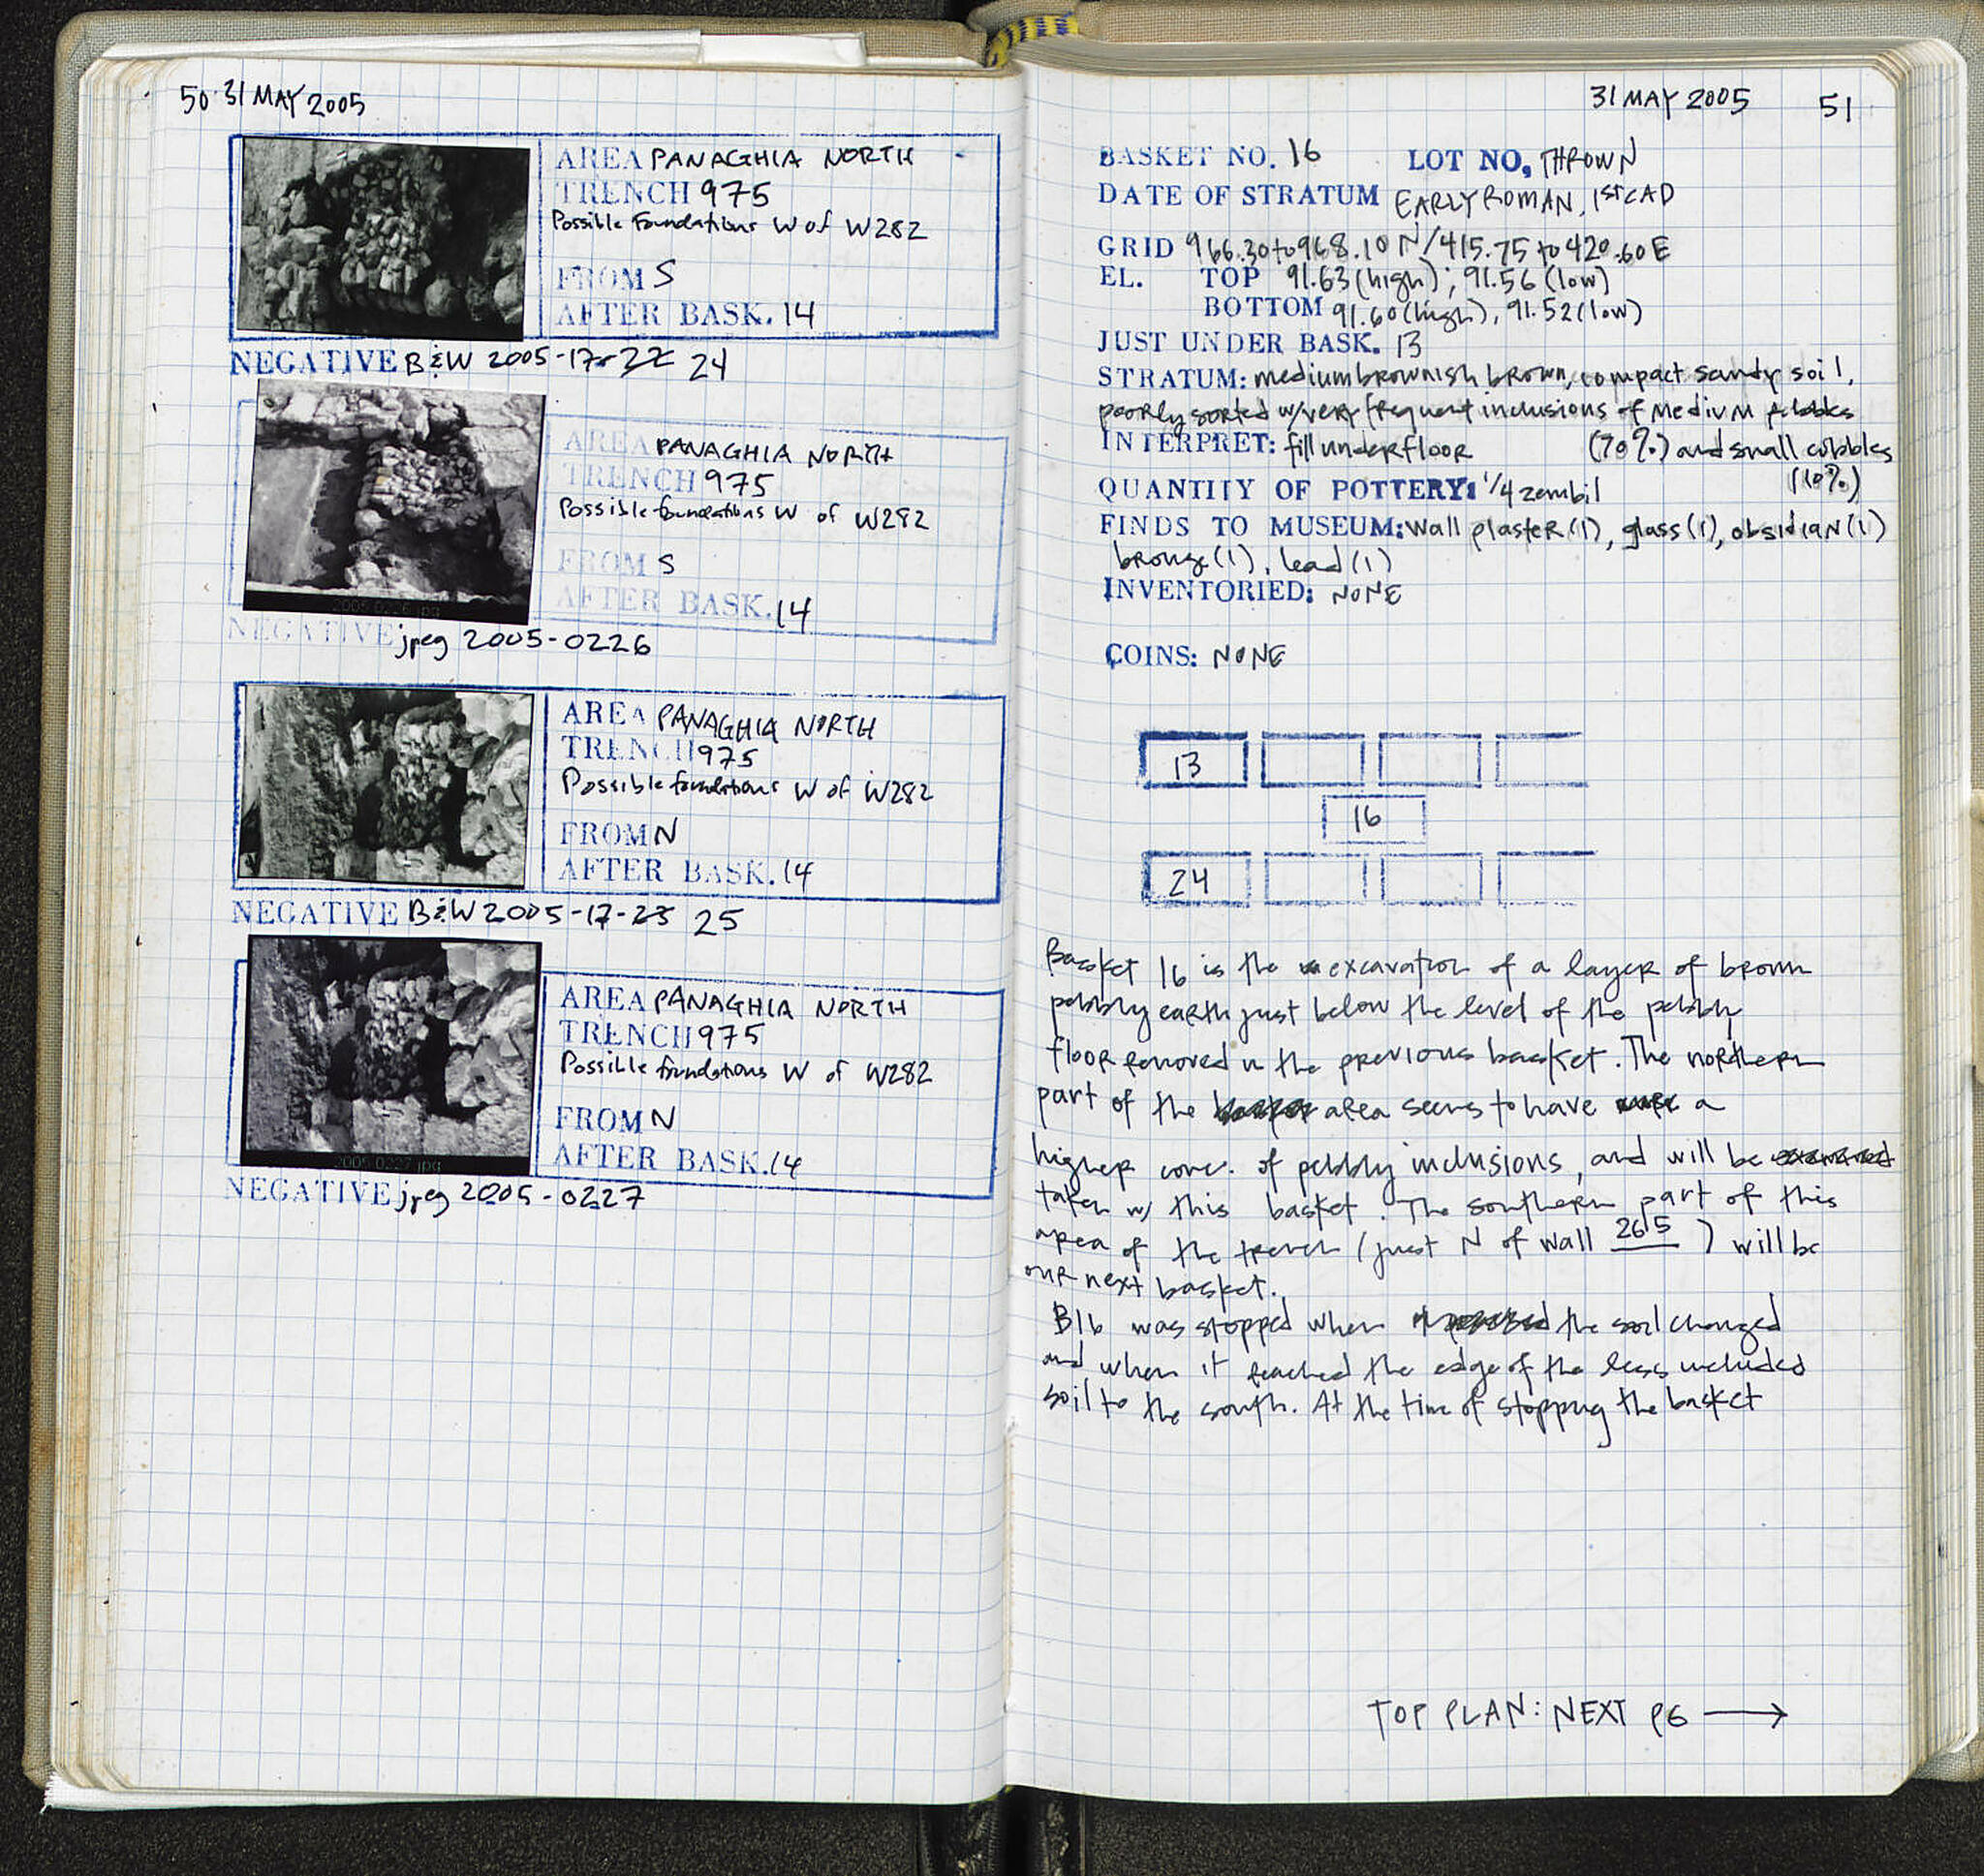 50 31 MAY 2005
AREA PANAGHIA NORTH
TRENCH 975
Possible Foundations W of W282
FROM S
AFTER BASK. 14
NEGATIVE B&W 2005-17-22 24
AREA PANAGHIA NORTH
TRENCH 975
Possible foundations W of W282
FROM S
AFTER BASK. 14
2005-0226.jpg
NEGATIVE jpeg 2005-0226
AREA PANAGHIA NORTH
TRENCH 975
Possible foundations W of W282
FROM N
AFTER BASK. 14
NEGATIVE B&W 2005-17-23 25
AREA PANAGHIA NORTH
TRENCH 975
Possible foundations W of W282
FROM N
AFTER BASK. 14
2005-0227.jpg
NEGATIVE jpeg 2005-0227
31 MAY 2005 51
BASKET NO. 16 LOT NO, THROWN
DATE OF STRATUM EARLY ROMAN, 1st C AD
GRID 966.30 to 968.10 N/415.75 to 420.60 E
EL. TOP 91.63 (high); 91.56 (low)
BOTTOM 91.60 (high), 91.52 (low)
JUST UNDER BASK. 13
STRATUM: medium brownish brown, compact sandy soil,
poorly sorted w/very frequent inclusions of medium pebbles
INTERPRET: fill under floor (70%) and small cobbles
QUANTITY OF POTTERY: 1/4 zembil (10%)
FINDS TO MUSEUM: wall plaster (1), glass (1), obsidian (1)
bronze (1), lead (1)
INVENTORIED: NONE
COINS: NONE
13
16
24
Basket 16 is the excavation of a layer of brown
pebbly earth just below the level of the pebbly
floor removed in the previous basket. The northern
part of the area seems to have a
higher conc. of pebbly inclusions, and will be
taken w/ this basket. The southern part of this
area of the trench (just N of wall 265) will be
our next basket.
B16 was stopped when the soil changed
and when it reached the edge of the less included
soil to the south. At the time of stopping the basket
TOP PLAN: NEXT PG →